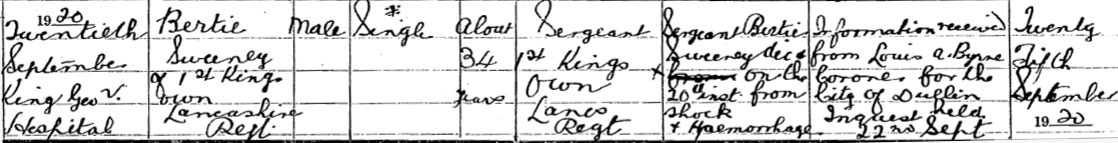 1920
Twentieth
September
King Geo V.
Hospital
Bertie
Sweeney
of 1st Kings
Own
Lancashire
Regt.
Male
Single
*
About
34
years
Sergeant
1st Kings
Own
Lancs
Regt
Sergeant Bertie
Sweeney decd
on the
20th inst from
Shock
+ Haemorrhage
Information received
from Louis A Byrne
Coroner for the
City of Dublin
Inquest held
22nd Sept
Twenty
Fifth
September
1920